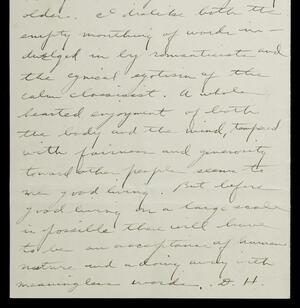 older. I dislike both the
empty mouthing of words in-
dulged in by romanticists and
the cynical egotism of the
calm classicist. A whole
hearted enjoyment of both
the body and the mind, tamped
with fairness and generosity
toward other people seems to
me good living. But before
good living on a large scale
is possible there will have
to be an acceptance of human
nature and a doing away with
meaningless words. D. H.